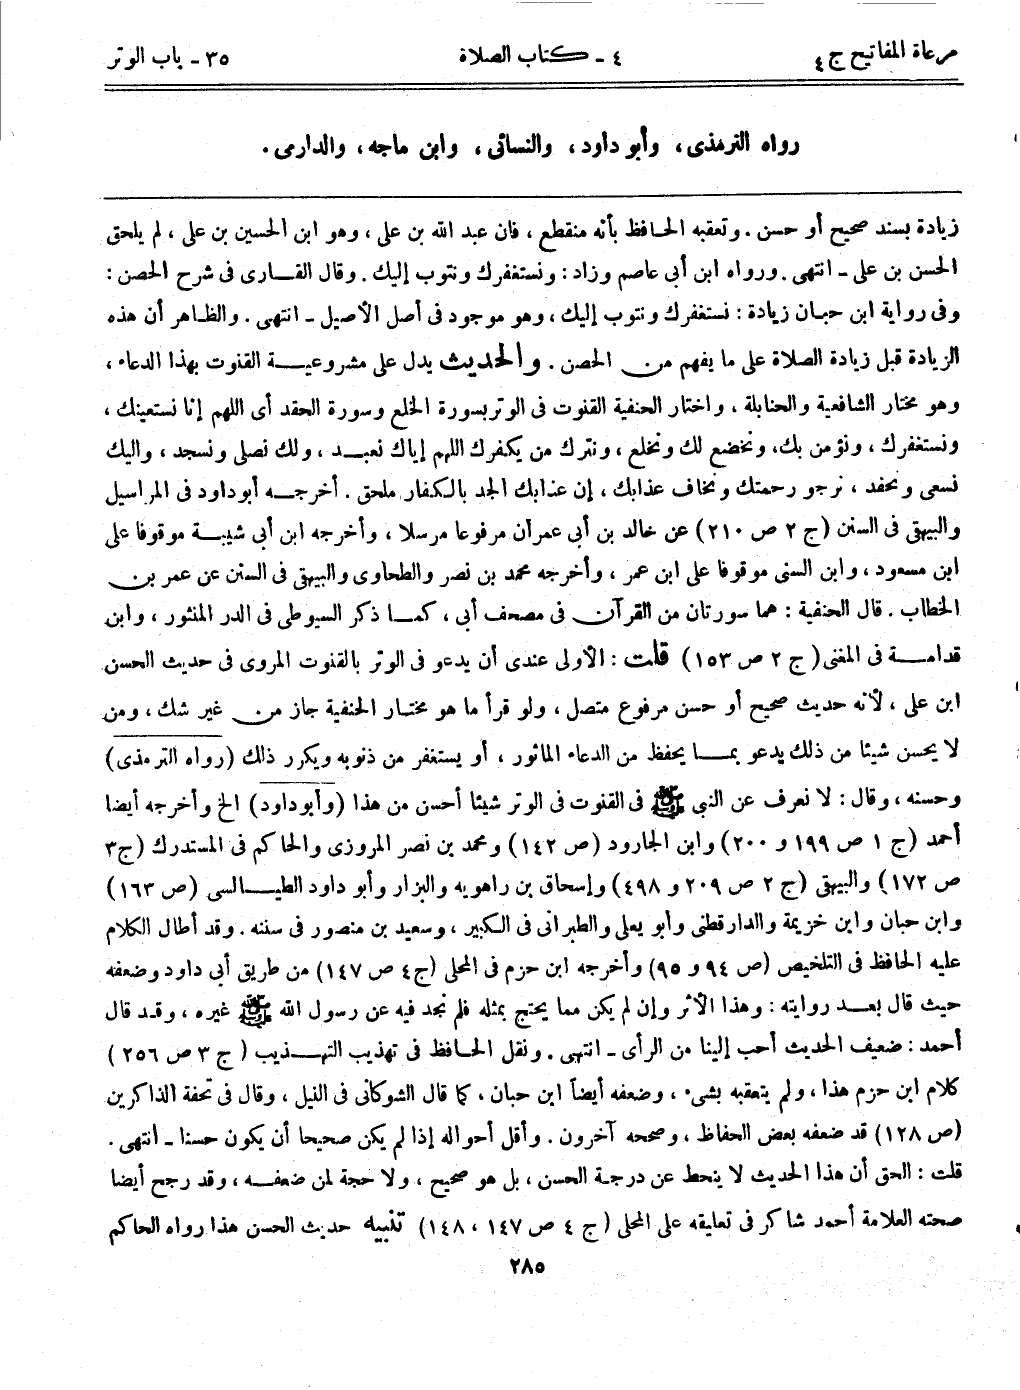 مرعاة المفاتيح ج ٤
٤ ـ كتاب الصلاة
٣٥ ـ باب الوتر
رواه الترمذى، وأبو داود، والنسائى، وابن ماجه، والدارمى.
زيادة بسند صحيح أو حسن. وتعقبه الحافظ بأنه منقطع، فان عبد الله بن على، وهو ابن الحسين بن على، لم يلحق
الحسن بن على ـ انتهى. ورواه ابن أبى عاصم وزاد: ونستغفرك ونتوب إليك. وقال القارى فى شرح الحصن:
وفى رواية ابن حبان زيادة: نستغفرك ونتوب إليك، وهو موجود فى أصل الأصيل ـ انتهى. والظاهر أن هذه
الزيادة قبل زيادة الصلاة على ما يفهم من الحصن. والحديث يدل على مشروعية القنوت بهذا الدعاء،
وهو مختار الشافعية والحنابلة، واختار الحنفية القنوت فى الوتر بسورة الخلع وسورة الحقد أى اللهم إنا نستعينك،
ونستغفرك، ونؤمن بك، ونخضع لك ونخلع، ونترك من يكفرك اللهم إياك نعبد، ولك نصلى ونسجد، واليك
نسعى ونحفد، نرجو رحمتك ونخاف عذابك، إن عذابك الجد بالكفار ملحق. أخرجه أبوداود فى المراسيل
والبيهقى فى السنن (ج ٢ ص ٢١٠) عن خالد بن أبى عمران مرفوعا مرسلا، وأخرجه ابن أبى شيبة موقوفا على
ابن مسعود، وابن السنى موقوفا على ابن عمر، وأخرجه محمد بن نصر والطحاوى والبيهقى فى السنن عن عمر بن
الخطاب. قال الحنفية: هما سورتان من القرآن فى مصحف أبى، كما ذكر السيوطى فى الدر المنثور، وابن
قدامة فى المغنى (ج ٢ ص ١٥٣) قلت: الأولى عندى أن يدعو فى الوتر بالقنوت المروى فى حديث الحسن
ابن على، لأنه حديث صحيح أو حسن مرفوع متصل، ولو قرأ ما هو مختار الحنفية جاز من غير شك، ومن
لا يحسن شيئا من ذلك يدعو بما يحفظ من الدعاء المأثور، أو يستغفر من ذنوبه ويكرر ذاك (رواه الترمذى)
وحسنه، وقال: لا نعرف عن النبى ﷺ فى القنوت فى الوتر شيئا أحسن من هذا (وأبوداود) الخ وأخرجه أيضا
أحمد (ج ١ ص ١٩٩ و ٢٠٠) وابن الجارود (ص ١٤٢) ومحمد بن نصر المروزى والحاكم فى المستدرك (ج٣
ص ١٧٢) والبيهقى (ج ٢ ص ٢٠٩ و ٤٩٨) وإسحاق بن راهويه والبزار وأبو داود الطيالسى (ص ١٦٣)
وابن حبان وابن خزيمة والدارقطنى وأبو يعلى والطبرانى فى الكبير، وسعيد بن منصور فى سننه. وقد أطال الكلام
عليه الحافظ فى التلخيص (ص ٩٤ و ٩٥) وأخرجه ابن حزم فى المحلى (ج٤ ص ١٤٧) من طريق أبى داود وضعفه
حيث قال بعد روايته: وهذا الأثر وإن لم يكن مما يحتج بمثله فلم نجد فيه عن رسول الله ﷺ غيره، وقد قال
أحمد: ضعيف الحديث أحب إلينا من الرأى ـ انتهى. ونقل الحافظ فى تهذيب التهذيب (ج ٣ ص ٢٥٦)
كلام ابن حزم هذا، ولم يتعقبه بشىء، وضعفه أيضاً ابن حبان، كما قال الشوكانى فى النيل، وقال فى تحفة الذاكرين
(ص ١٢٨) قد ضعفه بعض الحفاظ، وصححه آخرون. وأقل أحواله إذا لم يكن صحيحا أن يكون حسنا ـ انتهى.
قلت: الحق أن هذا الحديث لا ينحط عن درجة الحسن، بل هو صحيح، ولا حجة لمن ضعفه، وقد رجح أيضا
صحته العلامة أحمد شاكر فى تعليقه على المحلى (ج ٤ ص ١٤٧، ١٤٨) تنبيه حديث الحسن هذا رواه الحاكم
٢٨٥